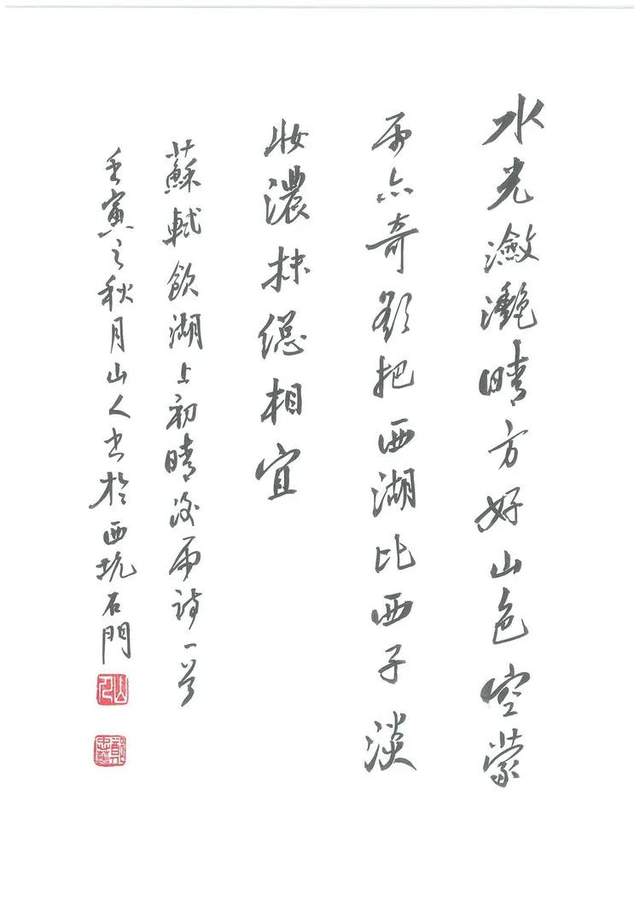 水光瀲灧晴方好山色空蒙
雨亦奇欲把西湖比西子淡
妝濃抹總相宜
蘇軾飲湖上初晴後雨詩一首
壬寅之秋月山人书於西坑石門
山人